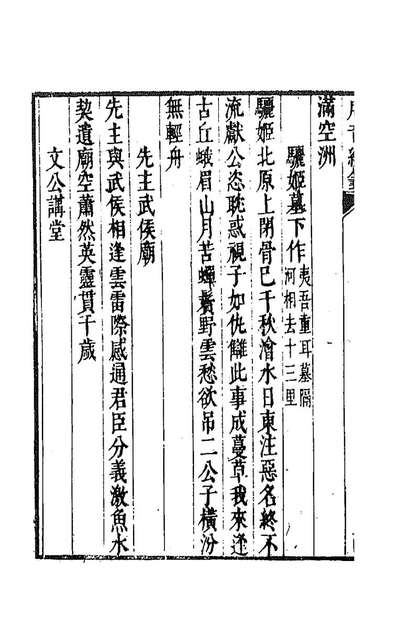 滿空洲
驪姬墓下作 夷吾重耳墓隔
河相去十三里
驪姬北原上閉骨已千秋澮水日東注惡名終不
流獻公恣耽惑視子如仇讎此事成蔓草我來逢
古丘蛾眉山月苦蟬鬢野雲愁欲吊二公子橫汾
無輕舟
先主武侯廟
先主與武侯相逢雲雷際感通君臣分義激魚水
契遺廟空蕭然英靈貫千歲
文公講堂